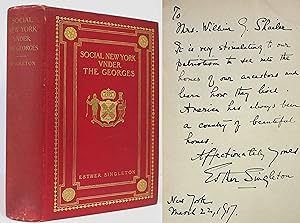 SOCIAL NEW YORK
VNDER
THE GEORGES
ESTHER SINGLETON
SOCIAL
NEW YORK
VNDER THE
GEORGES
To
Mrs. William G.
It is very stimulating to our
patriotism to see into the
homes of our ancestors and
learn how they lived.
America has always been
a country of beautiful
homes.
Affectionately yours
Esther Singleton
New York
March 22, 1917.